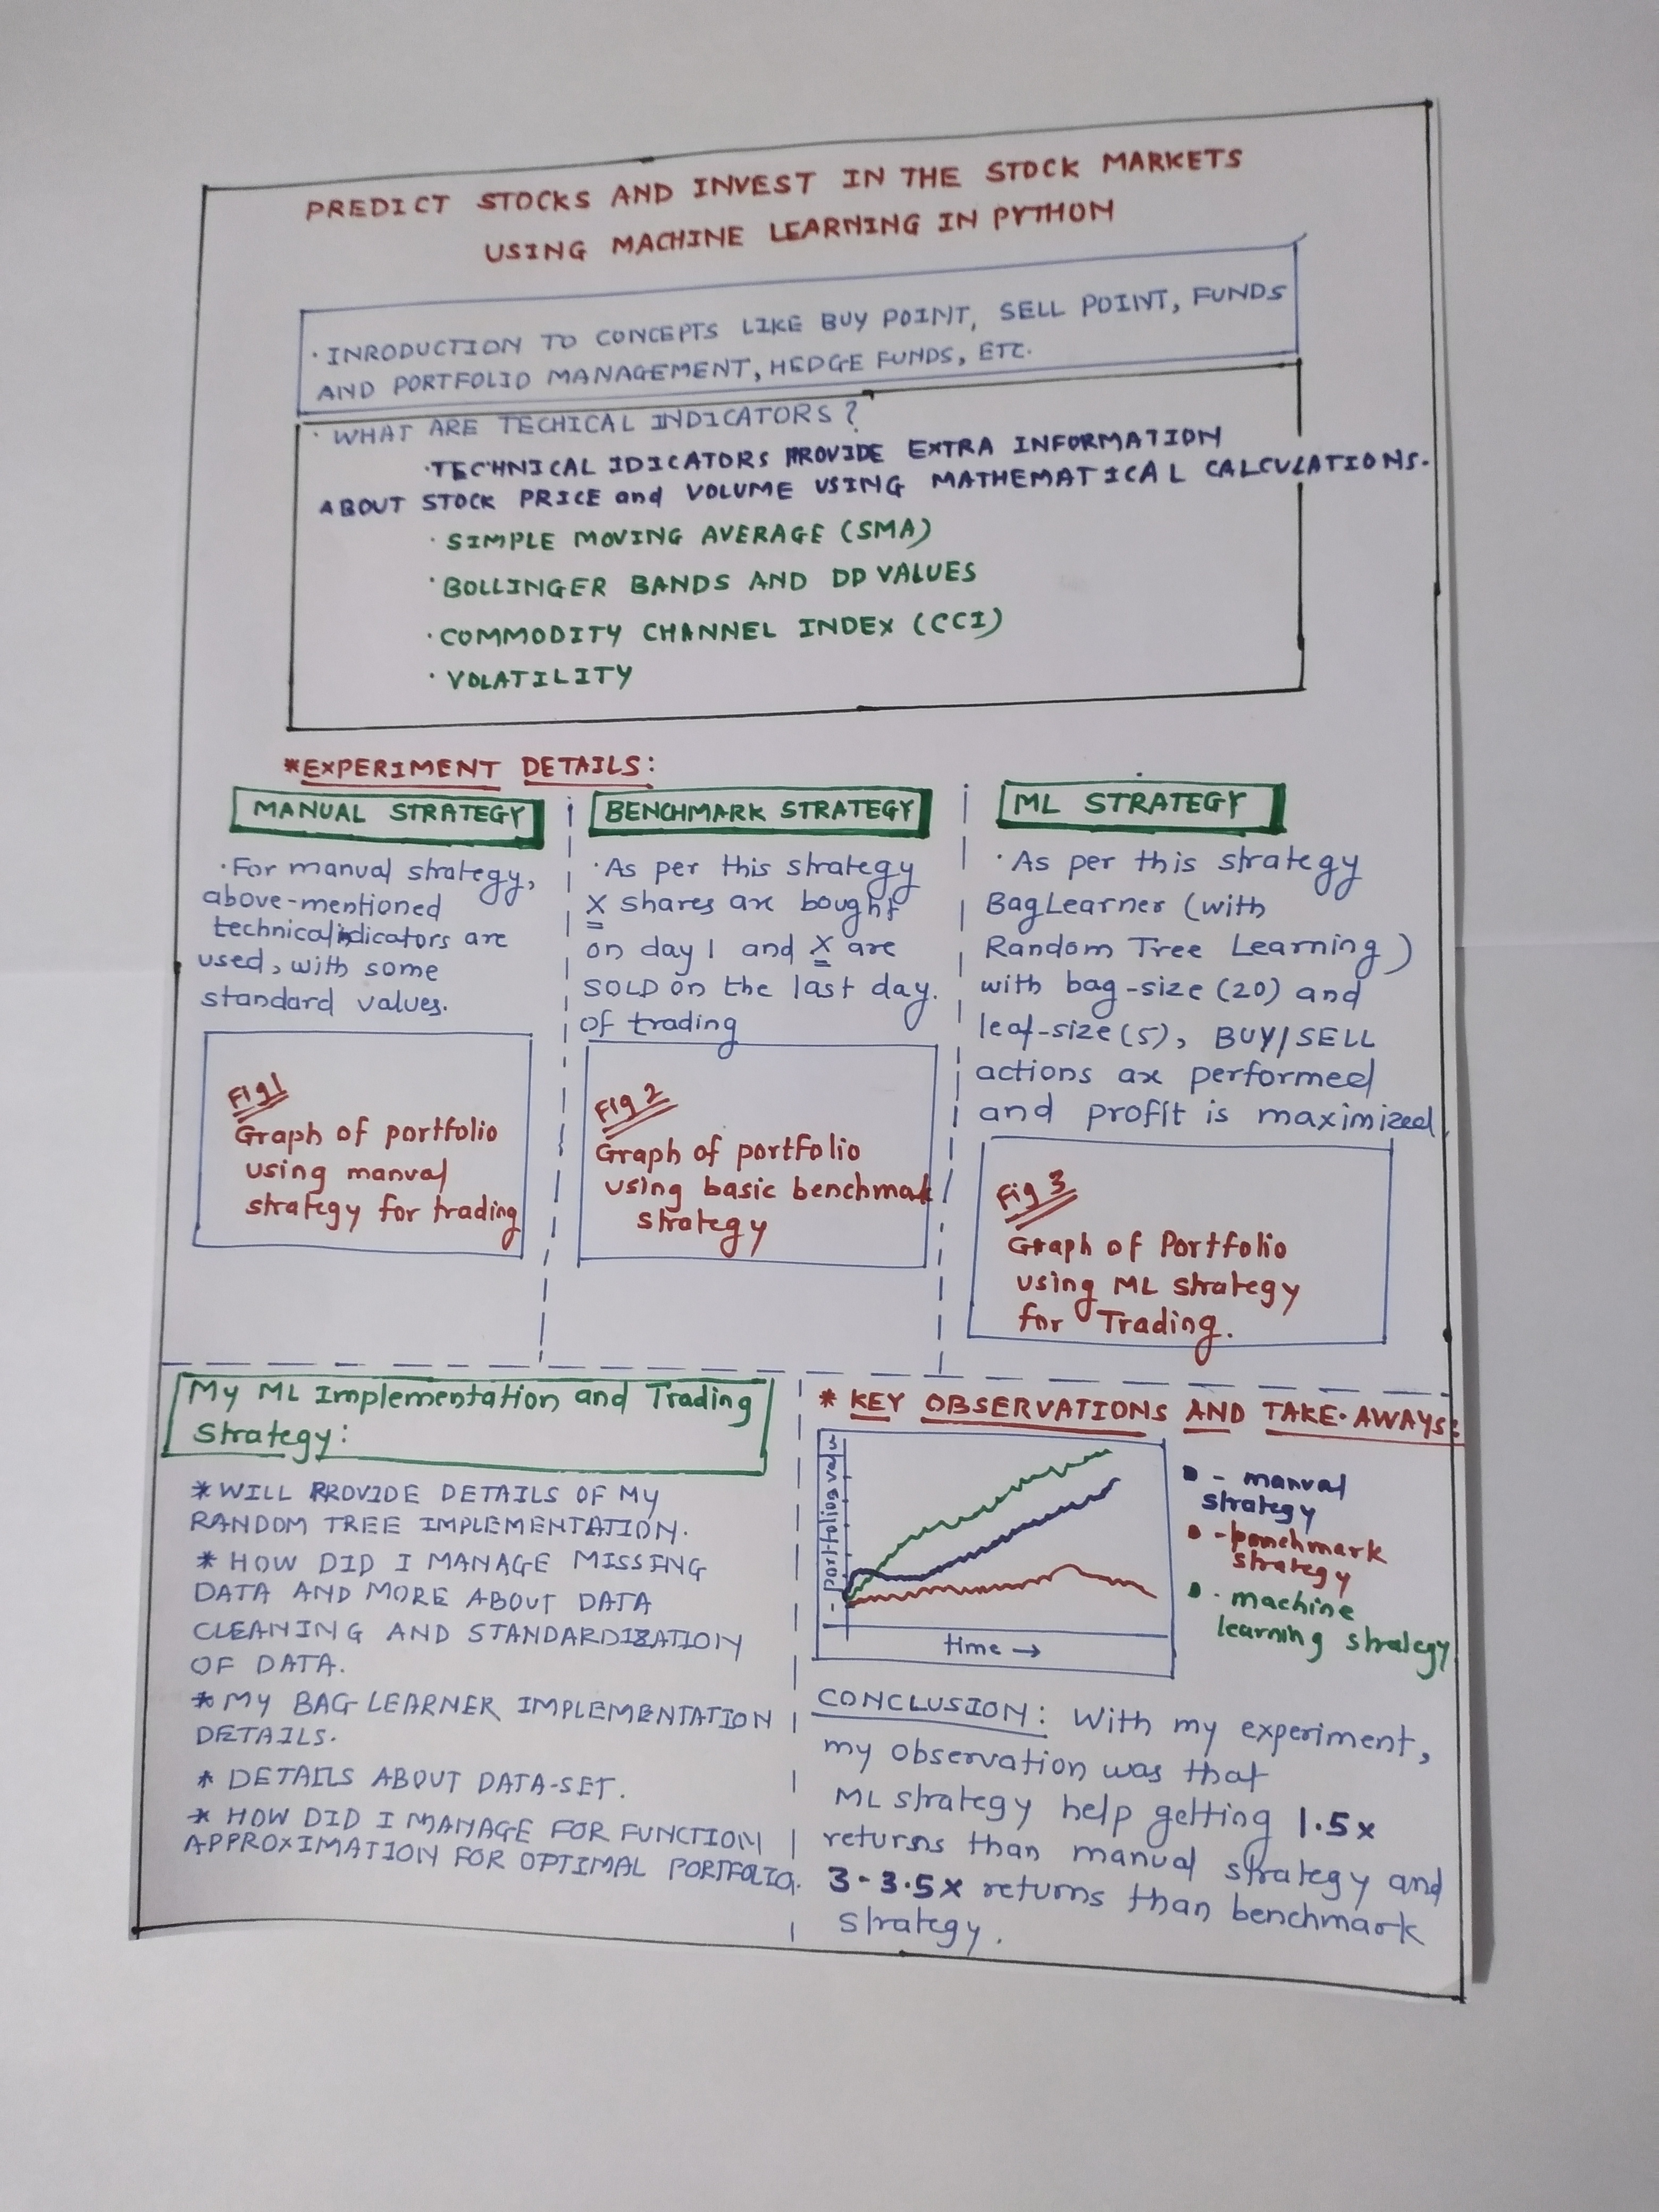 PREDICT STOCKS AND INVEST IN THE STOCK MARKETS
USING MACHINE LEARNING IN PYTHON
· INRODUCTION TO CONCEPTS LIKE BUY POINT, SELL POINT, FUNDS
AND PORTFOLIO MANAGEMENT, HEDGE FUNDS, ETC.
· WHAT ARE TECHICAL INDICATORS?
· TECHNICAL IDICATORS PROVIDE EXTRA INFORMATION
ABOUT STOCK PRICE and VOLUME USING MATHEMATICAL CALCULATIONS.
· SIMPLE MOVING AVERAGE (SMA)
· BOLLINGER BANDS AND DD VALUES
· COMMODITY CHANNEL INDEX (CCI)
· VOLATILITY
* EXPERIMENT DETAILS:
MANUAL STRATEGY
· For manual strategy,
above-mentioned
technical indicators are
used, with some
standard values.
Fig 1
Graph of portfolio
using manual
strategy for trading
BENCHMARK STRATEGY
· As per this strategy
X shares are bought
on day 1 and X are
SOLD on the last day.
of trading
Fig 2
Graph of portfolio
using basic benchmark
strategy
ML STRATEGY
· As per this strategy
BagLearner (with
Random Tree Learning)
with bag-size (20) and
leaf-size (5), BUY/SELL
actions are performed
and profit is maximized
Fig 3
Graph of Portfolio
using ML strategy
for Trading.
My ML Implementation and Trading
Strategy:
* WILL PROVIDE DETAILS OF MY
RANDOM TREE IMPLEMENTATION.
* HOW DID I MANAGE MISSING
DATA AND MORE ABOUT DATA
CLEANING AND STANDARDIZATION
OF DATA.
* MY BAG LEARNER IMPLEMENTATION
DETAILS.
* DETAILS ABOUT DATA-SET.
* HOW DID I MANAGE FOR FUNCTION
APPROXIMATION FOR OPTIMAL PORTFOLIO.
* KEY OBSERVATIONS AND TAKE-AWAYS:
time →
- manual
strategy
- benchmark
strategy
- machine
learning strategy
CONCLUSION: With my experiment,
my observation was that
ML strategy help getting 1.5x
returns than manual strategy and
3-3.5x returns than benchmark
strategy.